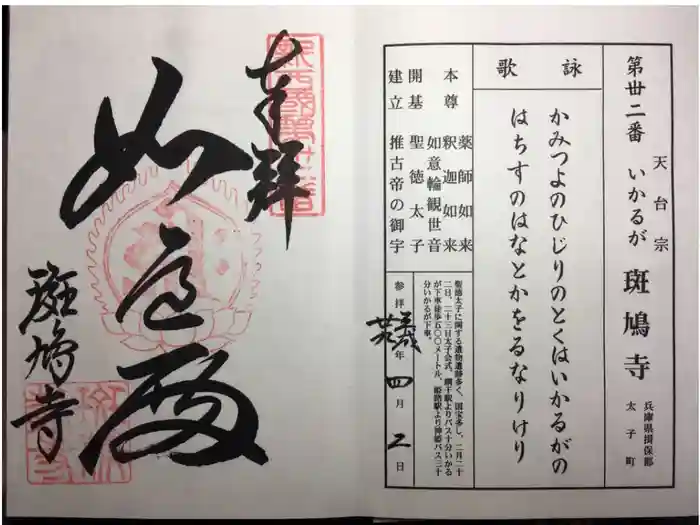 第丗二番
天台宗
いかるが 斑鳩寺
兵庫県揖保郡
太子町
詠歌
かみつよのひじりのとくはいかるがの
はちすのはなとかをるなりけり
本尊 薬師如来
釈迦如来
如意輪観世音
開基 聖徳太子
建立 推古帝の御宇
聖徳太子に関する遺物遺跡多く、国宝多し、二月二十
二日、二十三日太子会式。網干駅よりバス十分いかる
が下車徒歩五〇〇メートル、姫路駅より神姫バス三十
分いかるが下車。
参拝 年 四月 二日
奉拝
如意殿
斑鳩寺